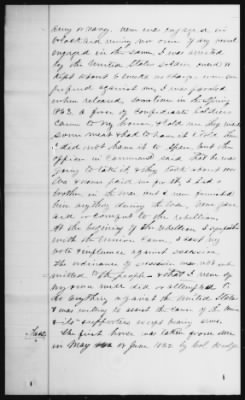 Army or Navy. Never was engaged in
blockade runing nor ever if any one
engaged in the same I was arrested
by the United States soldiers and
kept about 6 weeks no charge were
prefered against me, I was paroled
when released, sometime in the Spring
1863, a force of confederate soldiers
came to my house & told me they was
some meat & had to have it & I told them
I did not have it to spare but the
officer in command said that he was
going to take it & they took about 200
lbs & some paid me for it, I had a
brother in the war not I never furnished
him anything during the war, Never gave
aid or comfort to the rebellion.
At the begining of the Rebellion I sympathized
with the Union Cause, & cast my
vote & influence against secession,
the ordinance of secession was not sub
mitted to the people & that I never of
my own will did or attempted to
do anything against the United States
& was willing to assist the cause of the
& its supporters ways
The first horse was taken from me
in May or June 1862 by Col